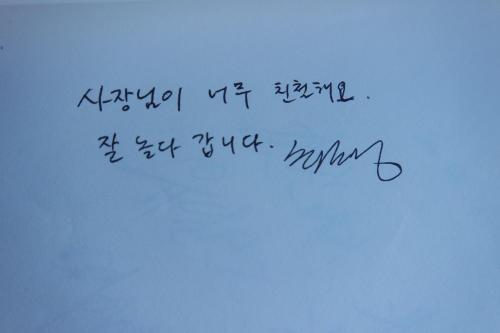 사장님이 너무 친절해요.
잘 놀다 갑니다.